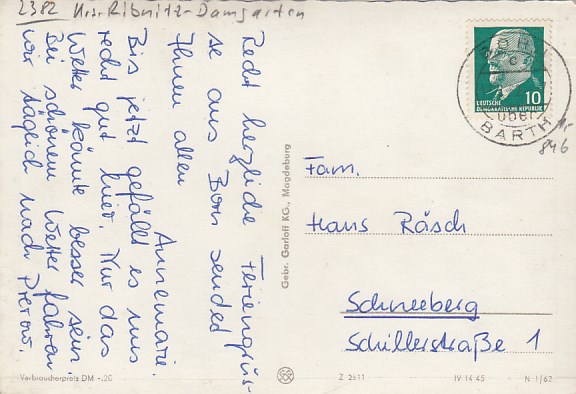 2382 Krs. Ribnitz-Damgarten
Recht herzliche Feriengrüs-
se aus Born sendet
Ihnen allen
Annemarie.
Bis jetzt gefällt es uns
recht gut hier. Nur das
Wetter könnte besser sein.
Bei schönem Wetter fahren
wir täglich nach Prerow.
Verbraucherpreis DM -.20
Gebr. Garloff KG., Magdeburg
10
DEUTSCHE
DEMOKRATISCHE REPUBLIK
BORN
c
über
BARTH
846
Fam.
Hans Räsch
Schneeberg
Schillerstraße 1
Z 2511
IV 14 45
N 1/62